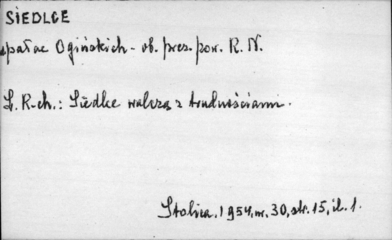 SIEDLCE
pałac Ogińskich - ob. prez. pow. R. N.
L. R-ch.: Siedlce walczą z trudnościami.
Stolica. 1954, nr. 30, str. 15, il. 1.